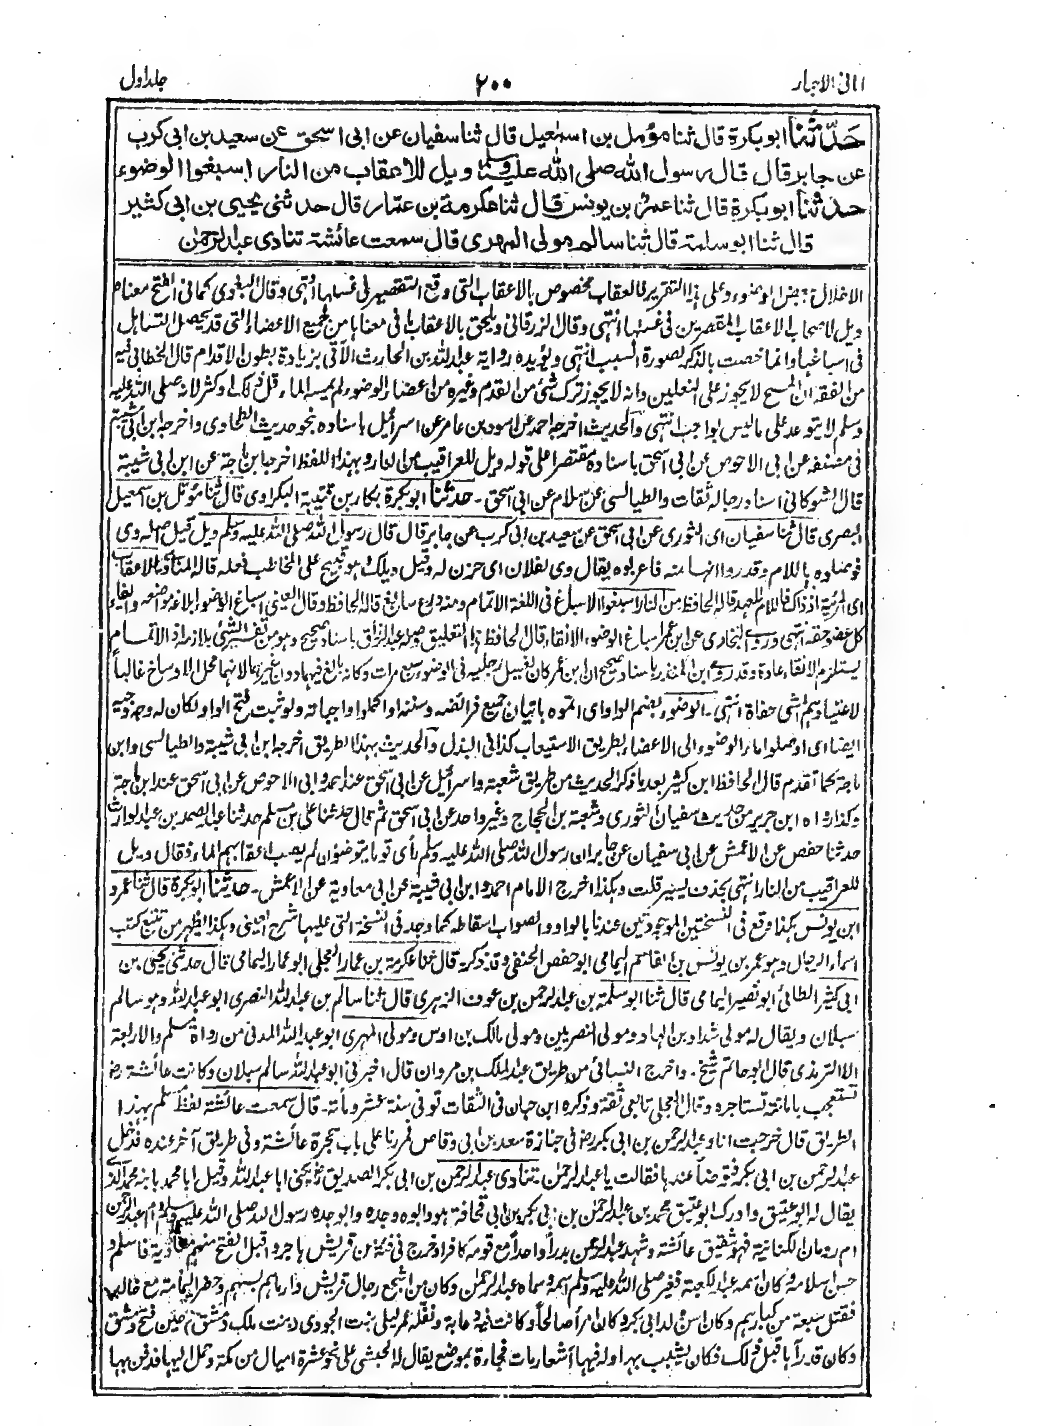 امانی الاحبار ۲۰۰ جلد اول
حَدّثنا ابو بكرة قال ثنا مؤمل بن اسمٰعيل قال ثنا سفيان عن ابى اسحٰق عن سعيد بن ابى كرب
عن جابر قال قال رسول الله صلى الله عليه وسلم ويل للاعقاب من النار اسبغوا الوضوء
حدثنا ابو بكرة قال ثنا عمر بن يونس قال ثنا عكرمة بن عمّار قال حدثنى يحيى بن ابى كثير
قال ثنا ابو سلمة قال ثنا سالم مولى المهرى قال سمعت عائشة تنادى عبد الرحمٰن
وعلى هذا التقرير فالعقاب مخصوص بالاعقاب التى وقع التقصير فى غسلها انتهى وقال البغوى كما فى الفتح معناه
ويل لاصحاب الاعقاب المقصرين فى غسلها انتهى وقال الزرقانى ويلحق بالاعقاب ما فى معناها من جميع الاعضاء التى قد يحصل التساهل
فى اسباغها وانما خصت بالذكر لصورة السبب انتهى ويؤيده رواية عبد الله بن الحارث الآتى بزيادة بطون الاقدام قال الخطابى فيه
من الفقه ان المسح لا يجوز على النعلين وانه لا يجوز ترك شئ من القدم وغيره من اعضاء الوضوء لم يمسه الماء قل ذلك او كثر لانه صلى الله عليه
وسلم لا يتوعد على ما ليس بواجب انتهى والحديث اخرجه احمد عن اسود بن عامر عن اسرائيل باسناده نحو حديث الطحاوى واخرجه ابن ابى شيبة
فى مصنفه عن ابى الاحوص عن ابى اسحق باسناده مقتصرا على قوله ويل للعراقيب من النار وبهذا اللفظ اخرجه ابن ماجة عن ابن ابى شيبة
قال الشوكانى اسناده رجاله ثقات والطيالسى عن سلام عن ابى اسحق۔ حدثنا ابو بكرة بكار بن قتيبة البكراوى قال ثنا مؤمل بن اسمعيل
البصرى قال ثنا سفيان اى الثورى عن ابى اسحق عن سعيد بن ابى كرب عن جابر قال قال رسول الله صلى الله عليه وسلم ويل قيل اصله وى
فوصلوه باللام وقدروا انها منه فاعربوه يقال وى لفلان اى حزن له وقيل ويلك هو تقبيح على المخاطب فعله قاله المناوى للاعقاب
اى المرئية اذ ذاك فاللام للعهد قاله الحافظ من النار اسبغوا الاسباغ فى اللغة الاتمام ومنه درع سابغ قاله الحافظ وقال العينى اسباغ الوضوء ابلاغه مواضعه وايفاء
كل عضو حقه انتهى وروى البخارى عن ابن عمر اسباغ الوضوء الانقاء قال الحافظ هذا التعليق وصله عبد الرزاق باسناد صحيح وهو من تفسير الشئ بلازمه اذ الاتمام
يستلزم الانقاء عادة وقد روى ابن المنذر باسناد صحيح ان ابن عمر كان يغسل رجليه فى الوضوء سبع مرات وكانه بالغ فيهما دون غيرهما لانهما محل الاوساخ غالباً
لاعتيادهم المشى حفاة انتهى۔ الوضوء بضم الواو اى اتموه باتيان جميع فرائضه وسننه او اكملوا واجباته ولو ثبت فتح الواو لكان له وجه وجيه
ايضا اى اوصلوا ماء الوضوء الى الاعضاء بطريق الاستيعاب كذا فى البذل والحديث بهذا الطريق اخرجه ابن ابى شيبة والطيالسى وابن
ماجة كما تقدم قال الحافظ ابن كثير بعد ما ذكر الحديث من طريق شعبة واسرائيل عن ابى اسحق عند احمد وابى الاحوص عن ابى اسحق عند ابن ماجة
وكذا رواه ابن جرير من حديث سفيان الثورى وشعبة بن الحجاج وغير واحد عن ابى اسحق ثم قال حدثنا على بن مسلم حدثنا عبد الصمد بن عبد الوارث
حدثنا حفص عن الاعمش عن ابى سفيان عن جابر ان رسول الله صلى الله عليه وسلم رأى قوما يتوضؤن لم يصب اعقابهم الماء فقال ويل
للعراقيب من النار انتهى بحذف يسير قلت وهكذا اخرج الامام احمد وابن ابى شيبة عن ابى معاوية عن الاعمش۔ حدثنا ابو بكرة قال ثنا عمرو
ابن يونس هكذا وقع فى النسختين الموجودتين عندنا بالواو والصواب اسقاطه كما وجد فى النسخة التى عليها شرح العينى وهكذا يظهر من تتبع كتب
اسماء الرجال وهو عمر بن يونس بن القاسم اليمامى ابو حفص الحنفى وقد ذكر قال ثنا عكرمة بن عمار العجلى ابو عمار اليمامى قال حدثنى يحيى بن
ابى كثير الطائى ابو نصير اليمامى قال ثنا ابو سلمة بن عبد الرحمن بن عوف الزهرى قال ثنا سالم بن عبد الله النصرى ابو عبد الله وهو سالم
سبلان ويقال له مولى شداد بن الهاد ومولى النصريين ومولى مالك بن اوس ومولى المهرى ابو عبد الله المدنى من رواة مسلم والاربعة
الا الترمذى قال ابو حاتم شيخ۔ واخرج النسائى من طريق عبد الملك بن مروان قال اخبرنى ابو عبد الله سالم سبلان وكانت عائشة رض
تستعجب بامانته تستاجره وقال العجلى تابعى ثقة وذكره ابن حبان فى الثقات توفى سنة عشر ومأتة۔ قال سمعت عائشة لفظ مسلم بهذا
الطريق قال خرجت انا وعبد الرحمن بن ابى بكر رض فى جنازة سعد بن ابى وقاص فمررنا على باب حجرة عائشة وفى طريق آخر عنده فدخل
عبد الرحمن بن ابى بكر فتوضأ عندها فقالت يا عبد الرحمٰن۔ تنادى عبد الرحمن بن ابى بكر الصديق رض يكنى ابا عبد الله وقيل ابا محمد بابنه محمد الذى
يقال له ابو عتيق وادرك ابو عتيق محمد بن عبد الرحمٰن بن ابى بكر بن ابى قحافة هو وابوه وجده وابو جده رسول الله صلى الله عليه وسلم وام عبد الرحمن
ام رومان الكنانية فهو شقيق عائشة وشهد عبد الرحمن بدراً واحداً مع قومه كافرا وخرج فى فتية من قريش هاجروا قبل الفتح منهم معاوية فاسلم و
حسن اسلامه وكان اسمه عبد الكعبة فغيره صلى الله عليه وسلم اسمه وسماه عبد الرحمٰن وكان من اشجع رجال قريش وارماهم بسهم وحضر اليمامة مع خالد
فقتل سبعة من كبارهم وكان اسن ولد ابى بكر وكان امرأ صالحاً وكانت فيه دعابة ونفله عمر ليلى بنت الجودى ابنت ملك دمشق حين فتح دمشق
وكان قد رآها قبل ذلك فكان يشبب بها وله فيها اشعار مات فجاءة بموضع يقال له الحبشى على نحو عشرة اميال من مكة وحمل اليها فدفن بها